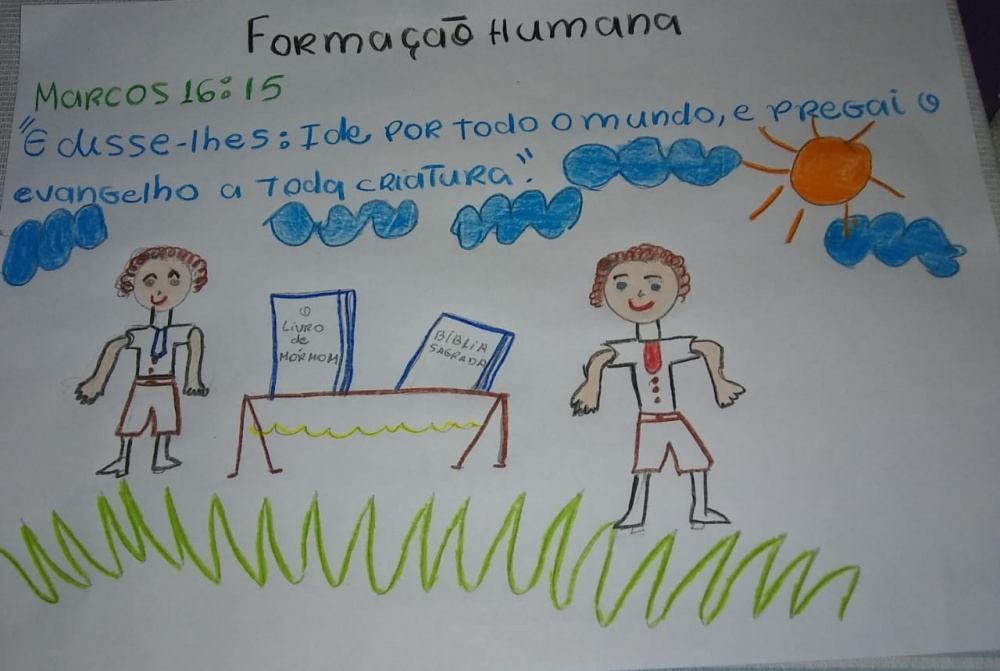 Formação Humana
Marcos 16:15
"E disse-lhes: Ide por todo o mundo, e pregai o
evangelho a toda criatura."
O
Livro
de
Mórmom
Bíblia
Sagrada